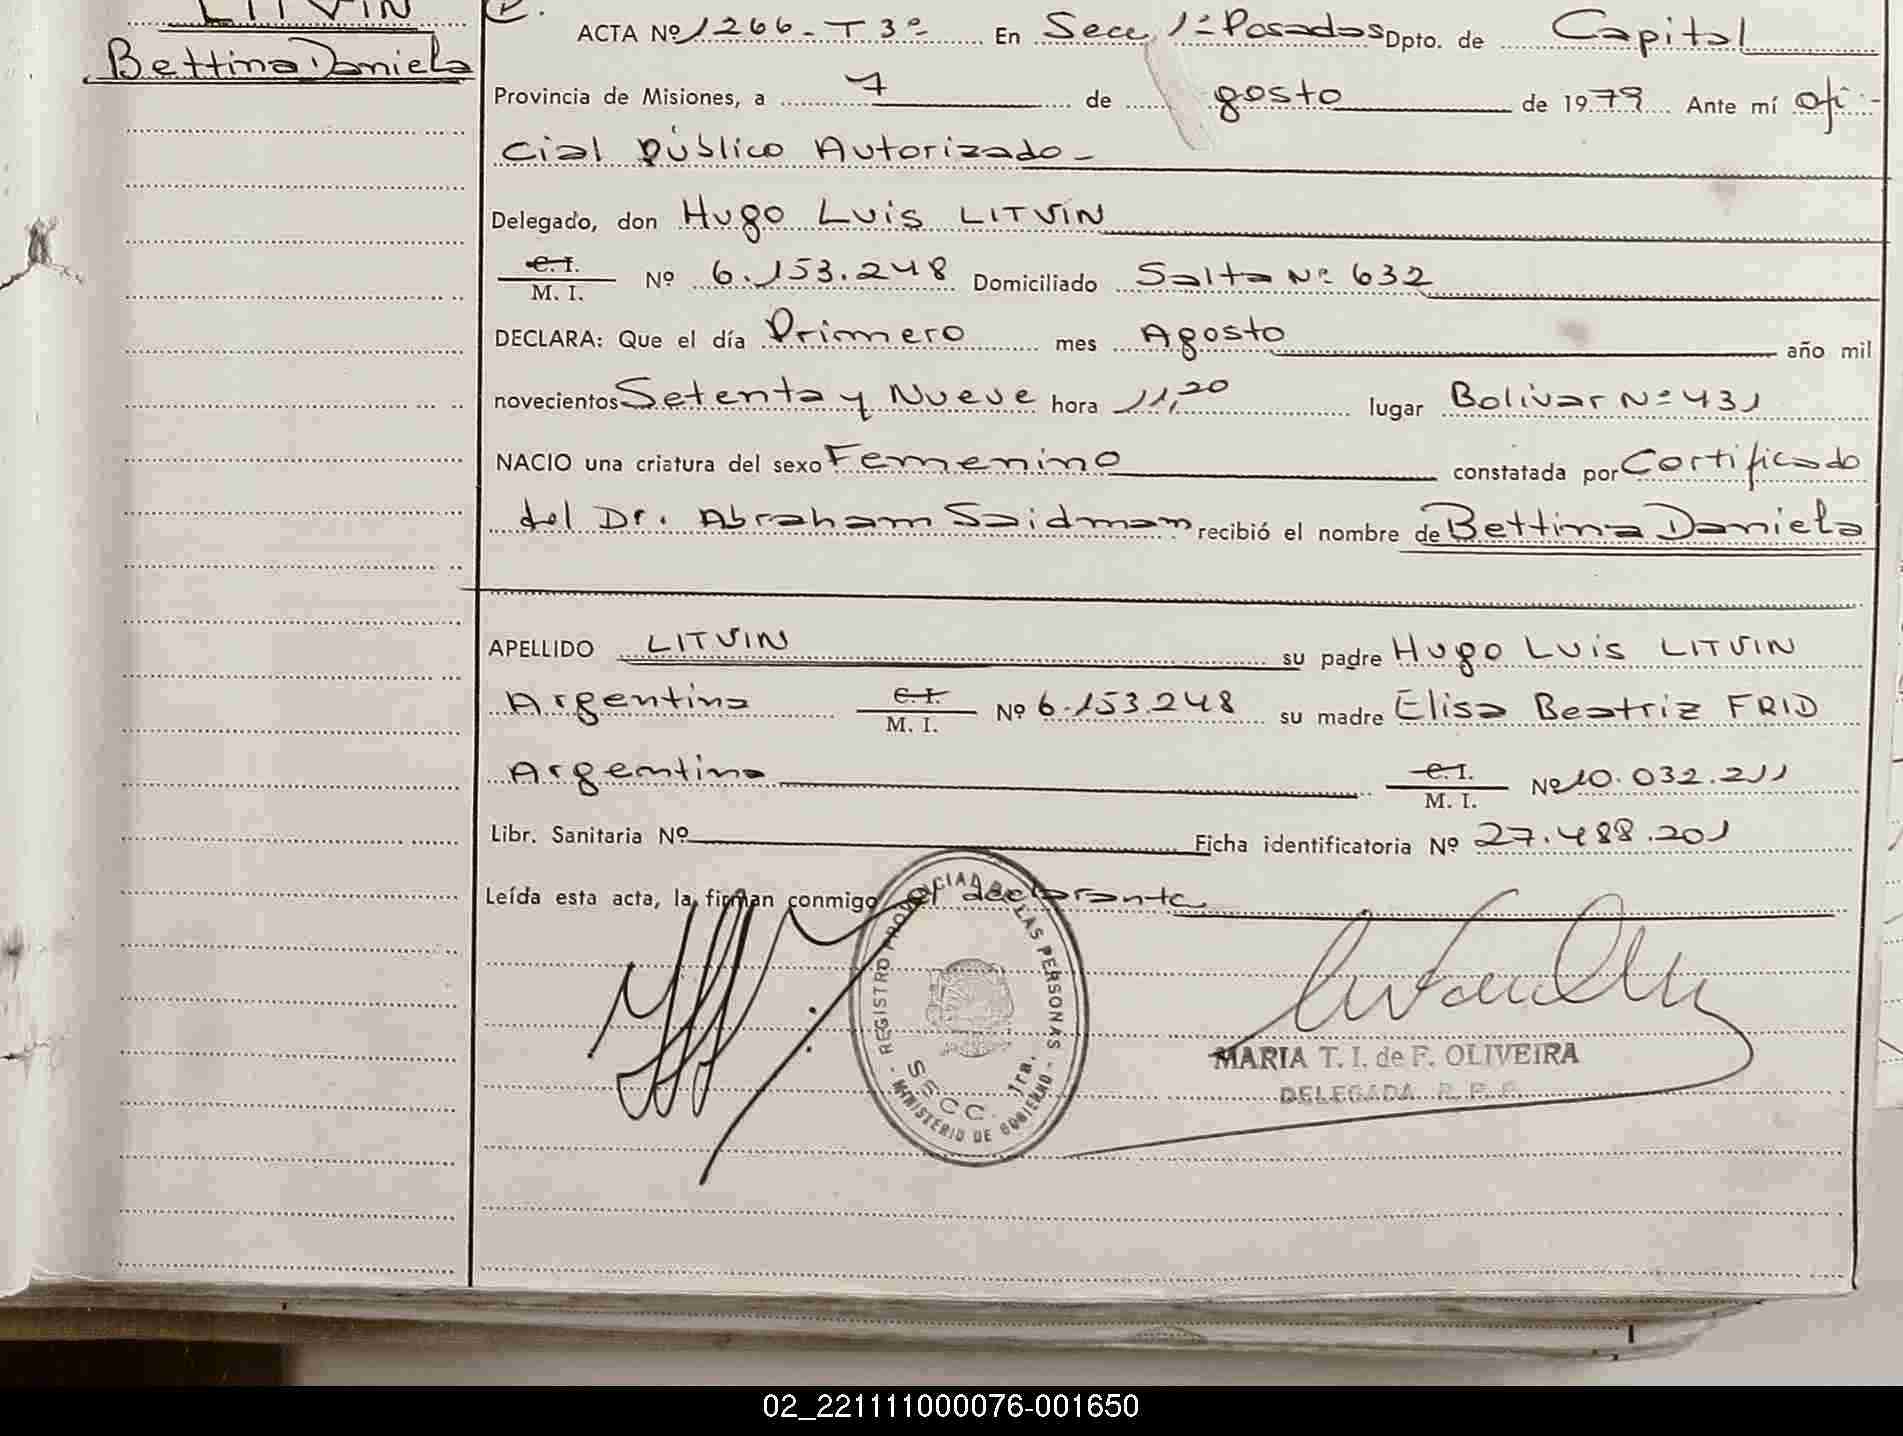 LITVIN
Bettina Daniela
ACTA Nº 1266 - T 3º En Secc 1ª Posadas Dpto. de Capital
Provincia de Misiones, a 7 de gosto de 1979 Ante mí ofi-
cial Público Autorizado -
Delegado, don Hugo Luis LITVIN
C. I.
M. I. Nº 6.153.248 Domiciliado Salta Nº 632
DECLARA: Que el día Primero mes Agosto año mil
novecientos Setenta y Nueve hora 11,20 lugar Bolivar Nº 431
NACIO una criatura del sexo Femenino constatada por Certificado
del Dr. Abraham Saidman recibió el nombre de Bettina Daniela
APELLIDO LITVIN su padre Hugo Luis LITVIN
Argentina C. I.
M. I. Nº 6.153.248 su madre Elisa Beatriz FRID
Argentina C. I.
M. I. Nº 10.032.211
Libr. Sanitaria Nº Ficha identificatoria Nº 27.488.201
Leída esta acta, la firman conmigo el declarante
REGISTRO PROVINCIAL DE LAS PERSONAS
SECC. 1ra.
- MINISTERIO DE GOBIERNO -
MARIA T. I. de F. OLIVEIRA
DELEGADA R. P. P.
02_221111000076-001650